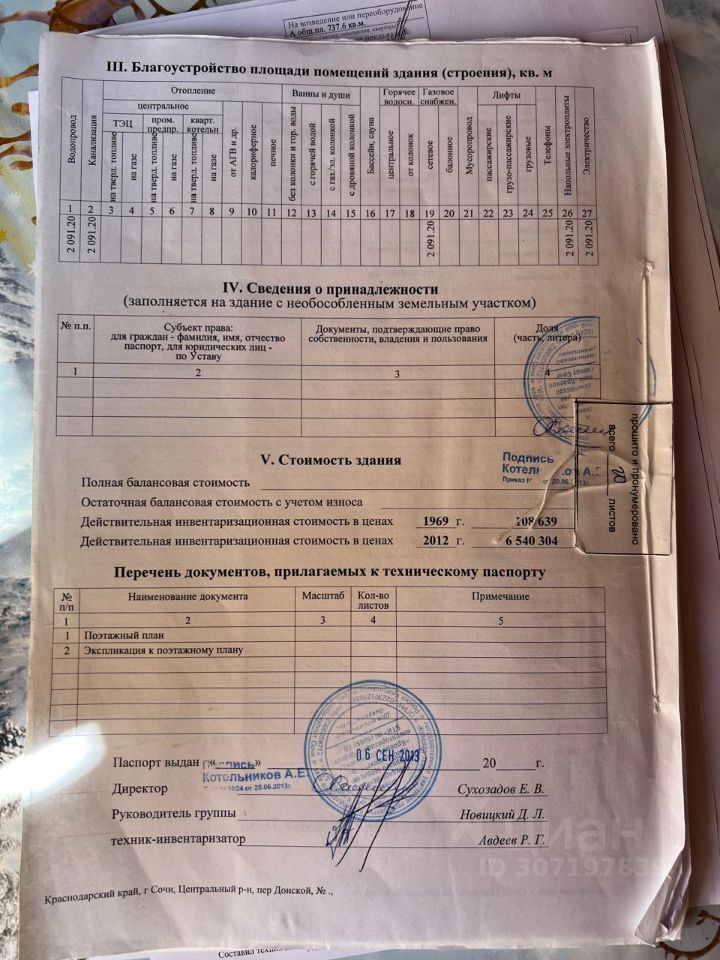 На возведение или переоборудование
А общ.пл. 737.6 кв.м.
III. Благоустройство площади помещений здания (строения), кв. м
Водопровод
Канализация
Отопление
центральное
ТЭЦ
на тверд. топливе
на газе
пром. предпр.
на тверд. топливе
на газе
кварт. котельн
на тверд. топливе
на газе
от АГВ и др.
калориферное
печное
Ванны и души
без колонки и гор. воды
с горячей водой
с газ/эл. колонкой
с дровяной колонкой
Бассейн, сауна
Горячее водосн.
центральное
от колонок
Газовое снабжен.
сетевое
балонное
Мусоропровод
Лифты
пассажирские
грузо-пассажирские
грузовые
Телефоны
Напольные электроплиты
Электричество
1 2 3 4 5 6 7 8 9 10 11 12 13 14 15 16 17 18 19 20 21 22 23 24 25 26 27
2 091.20 2 091.20 2 091.20 2 091.20 2 091.20
IV. Сведения о принадлежности
(заполняется на здание с необособленным земельным участком)
№ п.п.
Субъект права:
для граждан - фамилия, имя, отчество
паспорт, для юридических лиц -
по Уставу
Документы, подтверждающие право
собственности, владения и пользования
Доля
(часть, литера)
1 2 3 4
прошито и пронумеровано
всего 20 листов
V. Стоимость здания
Подпись
Полная балансовая стоимость
Остаточная балансовая стоимость с учетом износа
Действительная инвентаризационная стоимость в ценах 1969 г. 108 639
Действительная инвентаризационная стоимость в ценах 2012 г. 6 540 304
Перечень документов, прилагаемых к техническому паспорту
№ п/п Наименование документа Масштаб Кол-во листов Примечание
1 2 3 4 5
1 Поэтажный план
2 Экспликация к поэтажному плану
06 СЕН 2013
Паспорт выдан «» 20 г.
Подпись
Котельников А.Е
№24 от 20.06.2013г.
Директор Сухозадов Е. В.
Руководитель группы Новицкий Д. Л.
техник-инвентаризатор Авдеев Р. Г.
Краснодарский край, г Сочи, Центральный р-н, пер Донской, № .,
Составил